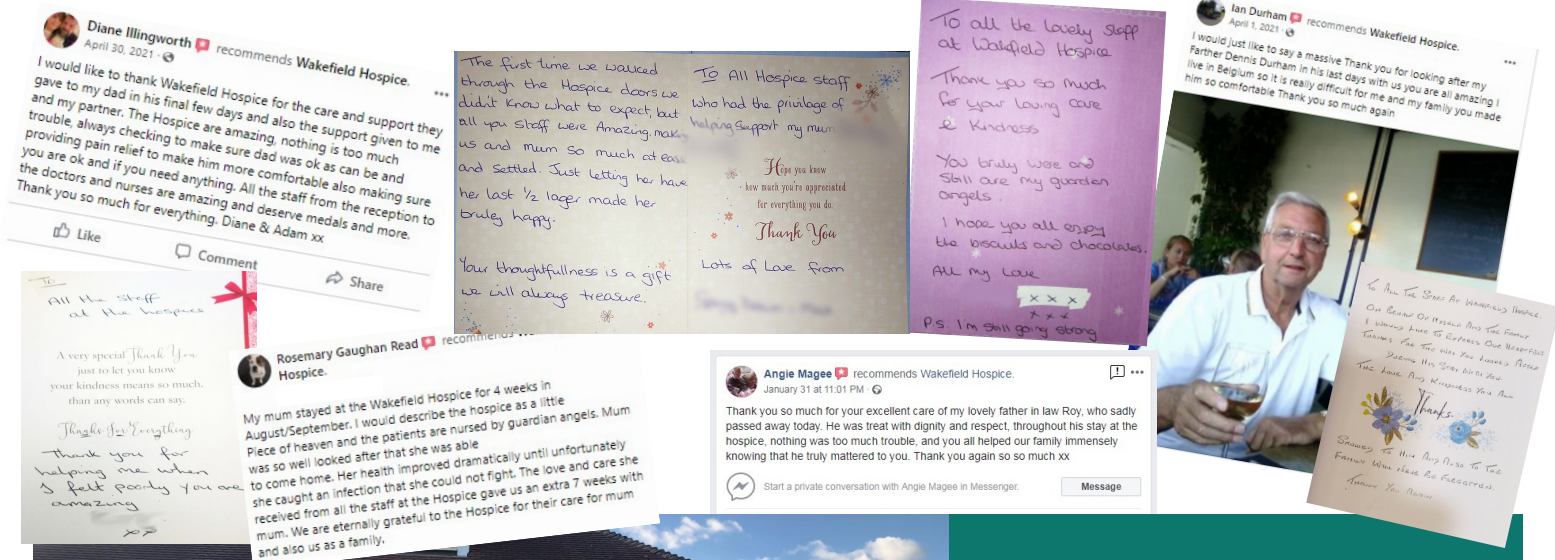 Diane Illingworth recommends Wakefield Hospice.
April 30, 2021
I would like to thank Wakefield Hospice for the care and support they
gave to my dad in his final few days and also the support given to me
and my partner. The Hospice are amazing, nothing is too much
trouble, always checking to make sure dad was ok as can be and
providing pain relief to make him more comfortable also making sure
you are ok and if you need anything. All the staff from the reception to
the doctors and nurses are amazing and deserve medals and more.
Thank you so much for everything. Diane & Adam xx
Like
Comment
Share
The first time we walked
through the Hospice doors we
didn't know what to expect, but
all you staff were Amazing, making
us and mum so much at ease
and settled. Just letting her have
her last ½ lager made her
truley happy.
Your thoughtfullness is a gift
we will always treasure.
To All Hospice staff
who had the privilage of
helping support my mum
Hope you know
how much you're appreciated
for everything you do.
Thank You
Lots of Love from
To all the lovely staff
at Wakefield Hospice
Thank you so much
for your loving care
& Kindness
You truly were and
still are my guardian
angels.
I hope you all enjoy
the biscuits and chocolates.
All my love
x x x
x x x
P.S. I'm still going strong
Ian Durham recommends Wakefield Hospice.
April 1, 2021
I would just like to say a massive Thank you for looking after my
Farther Dennis Durham in his last days with us you are all amazing I
live in Belgium so it is really difficult for me and my family you made
him so comfortable Thank you so much again
To
All the staff
at the hospice
A very special Thank You
just to let you know
your kindness means so much,
than any words can say.
Thanks For Everything
Thank you for
helping me when
I felt poorly you are
amazing
xx
Rosemary Gaughan Read recommends
Hospice.
My mum stayed at the Wakefield Hospice for 4 weeks in
August/September. I would describe the hospice as a little
Piece of heaven and the patients are nursed by guardian angels. Mum
was so well looked after that she was able
to come home. Her health improved dramatically until unfortunately
she caught an infection that she could not fight. The love and care she
received from all the staff at the Hospice gave us an extra 7 weeks with
mum. We are eternally grateful to the Hospice for their care for mum
and also us as a family.
Angie Magee recommends Wakefield Hospice.
January 31 at 11:01 PM
Thank you so much for your excellent care of my lovely father in law Roy, who sadly
passed away today. He was treat with dignity and respect, throughout his stay at the
hospice, nothing was too much trouble, and you all helped our family immensely
knowing that he truly mattered to you. Thank you again so so much xx
Start a private conversation with Angie Magee in Messenger.
Message
To All The Staff At Wakefield Hospice.
On Behalf Of Myself And The Family
I Would Like To Express Our Heartfelt
Thanks For The Way You Looked After
During His Stay With You
The Love And Kindness You All
Thanks
Showed To Him And Also To The
Family Will Never Be Forgotten.
Thank You Again